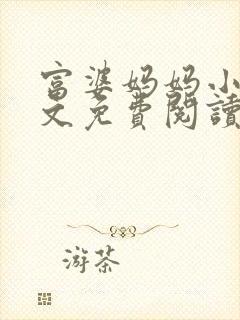 富婆妈妈小
文免費閱讀
游茶